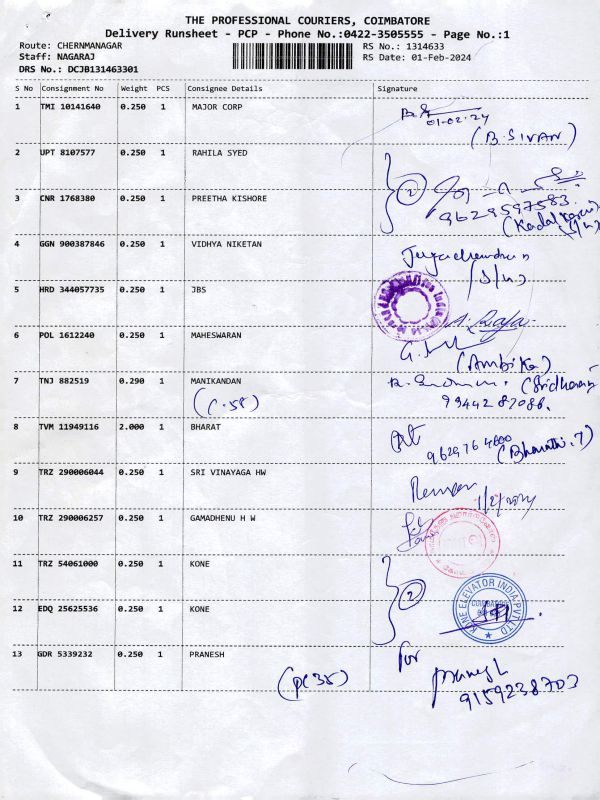 THE PROFESSIONAL COURIERS, COIMBATORE
Delivery Runsheet - PCP - Phone No.:0422-3505555 - Page No.:1
Route: CHERNMANAGAR RS No.: 1314633
Staff: NAGARAJ RS Date: 01-Feb-2024
DRS No.: DCJB131463301
S No Consignment No Weight PCS Consignee Details Signature
1 TMI 10141640 0.250 1 MAJOR CORP
01-02-24
(B.SIVAN)
2 UPT 8107577 0.250 1 RAHILA SYED
2
3 CNR 1768380 0.250 1 PREETHA KISHORE
9629597583
4 GGN 900387846 0.250 1 VIDHYA NIKETAN
(S/n)
5 HRD 344057735 0.250 1 JBS
6 POL 1612240 0.250 1 MAHESWARAN
(Ambika)
7 TNJ 882519 0.290 1 MANIKANDAN (Sridharan)
(C.58) 9944287086.
8 TVM 11949116 2.000 1 BHARAT
9629764600 (Bharathi.7)
9 TRZ 290006044 0.250 1 SRI VINAYAGA HW
1/2/2024
10 TRZ 290006257 0.250 1 GAMADHENU H W
11 TRZ 54061000 0.250 1 KONE
2
KONE ELEVATOR INDIA PVT LTD
COIMBATORE
12 EDQ 25625536 0.250 1 KONE
13 GDR 5339232 0.250 1 PRANESH for
(pc 35) pranesh
9159238703